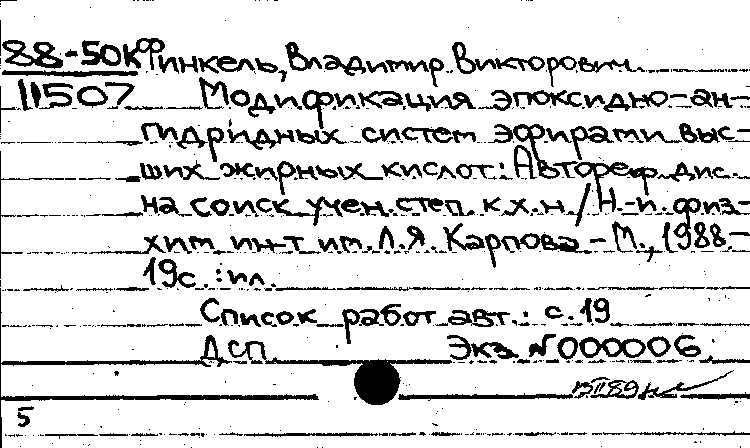 88-50кф Финкель, Владимир Викторович.
11507 Модификация эпоксидно-ан-
гидридных систем эфирами выс-
ших жирных кислот: Автореф. дис.
на соиск. учен. степ. к.х.н. / Н.-и. физ-
хим. ин-т им. Л.Я. Карпова. - М., 1988 -
19с. : ил.
Список работ авт.: с. 19
ДСП. Экз. №000006.
5